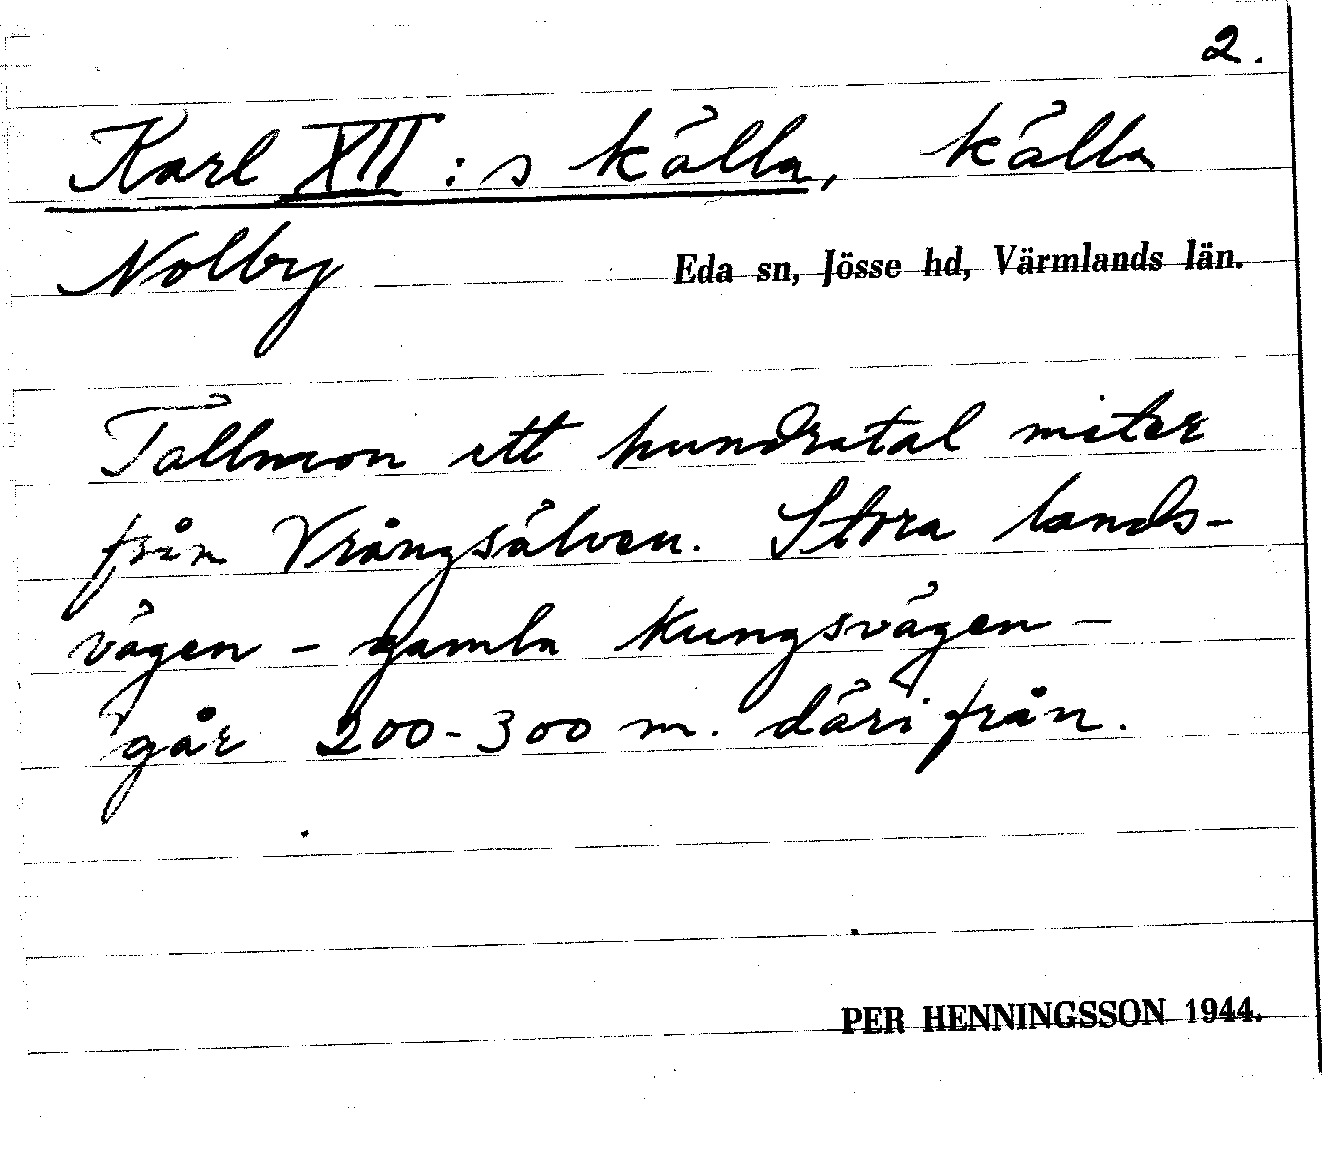 2.
Karl XII:s källa, källa
Nolby
Eda sn, Jösse hd, Värmlands län.
Tallmon ett hundratal meter
från Vrångsälven. Stora lands-
vägen - gamla Kungsvägen -
går 200-300 m. därifrån.
PER HENNINGSSON 1944.